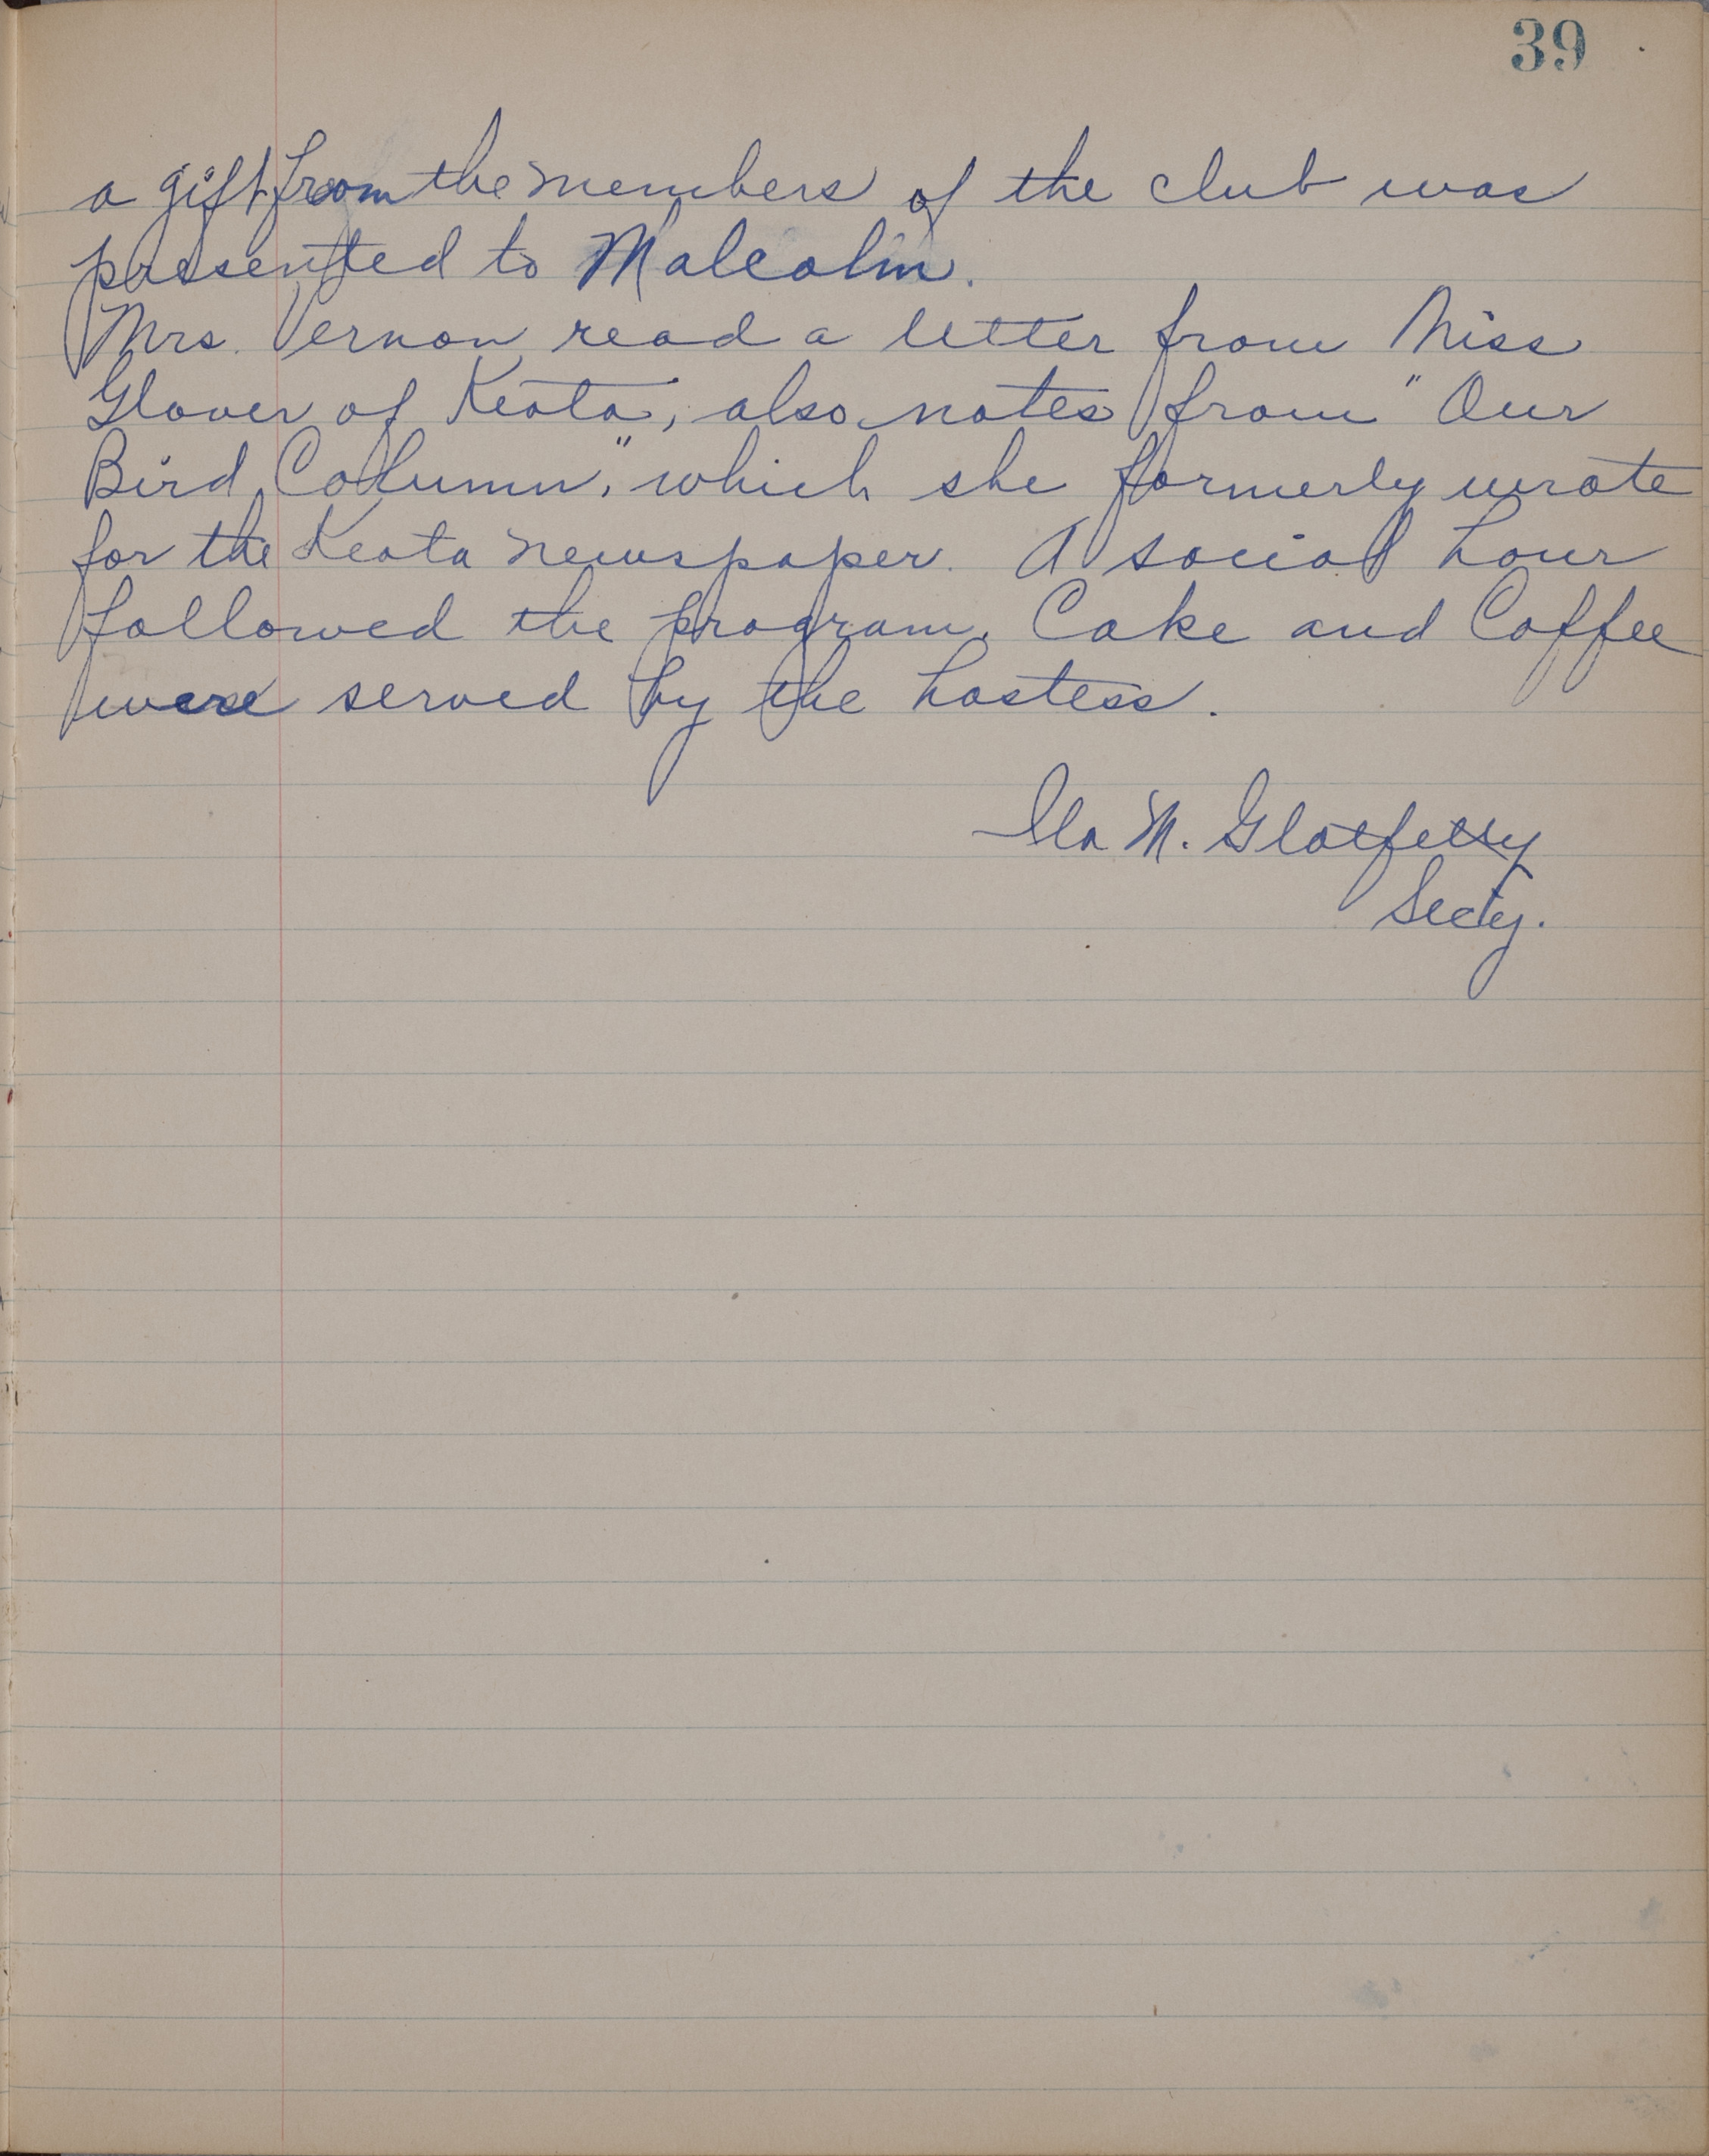 39
a gift from the members of the club was
presented to Malcolm.
Mrs. Vernon read a letter from Miss
Glover of Keota, also notes from "Our
Bird Column," which she formerly wrote
for the Keota newspaper. A social hour
followed the program. Cake and Coffee
were served by the hostess.
Ila M. Glotfelty
Secty.